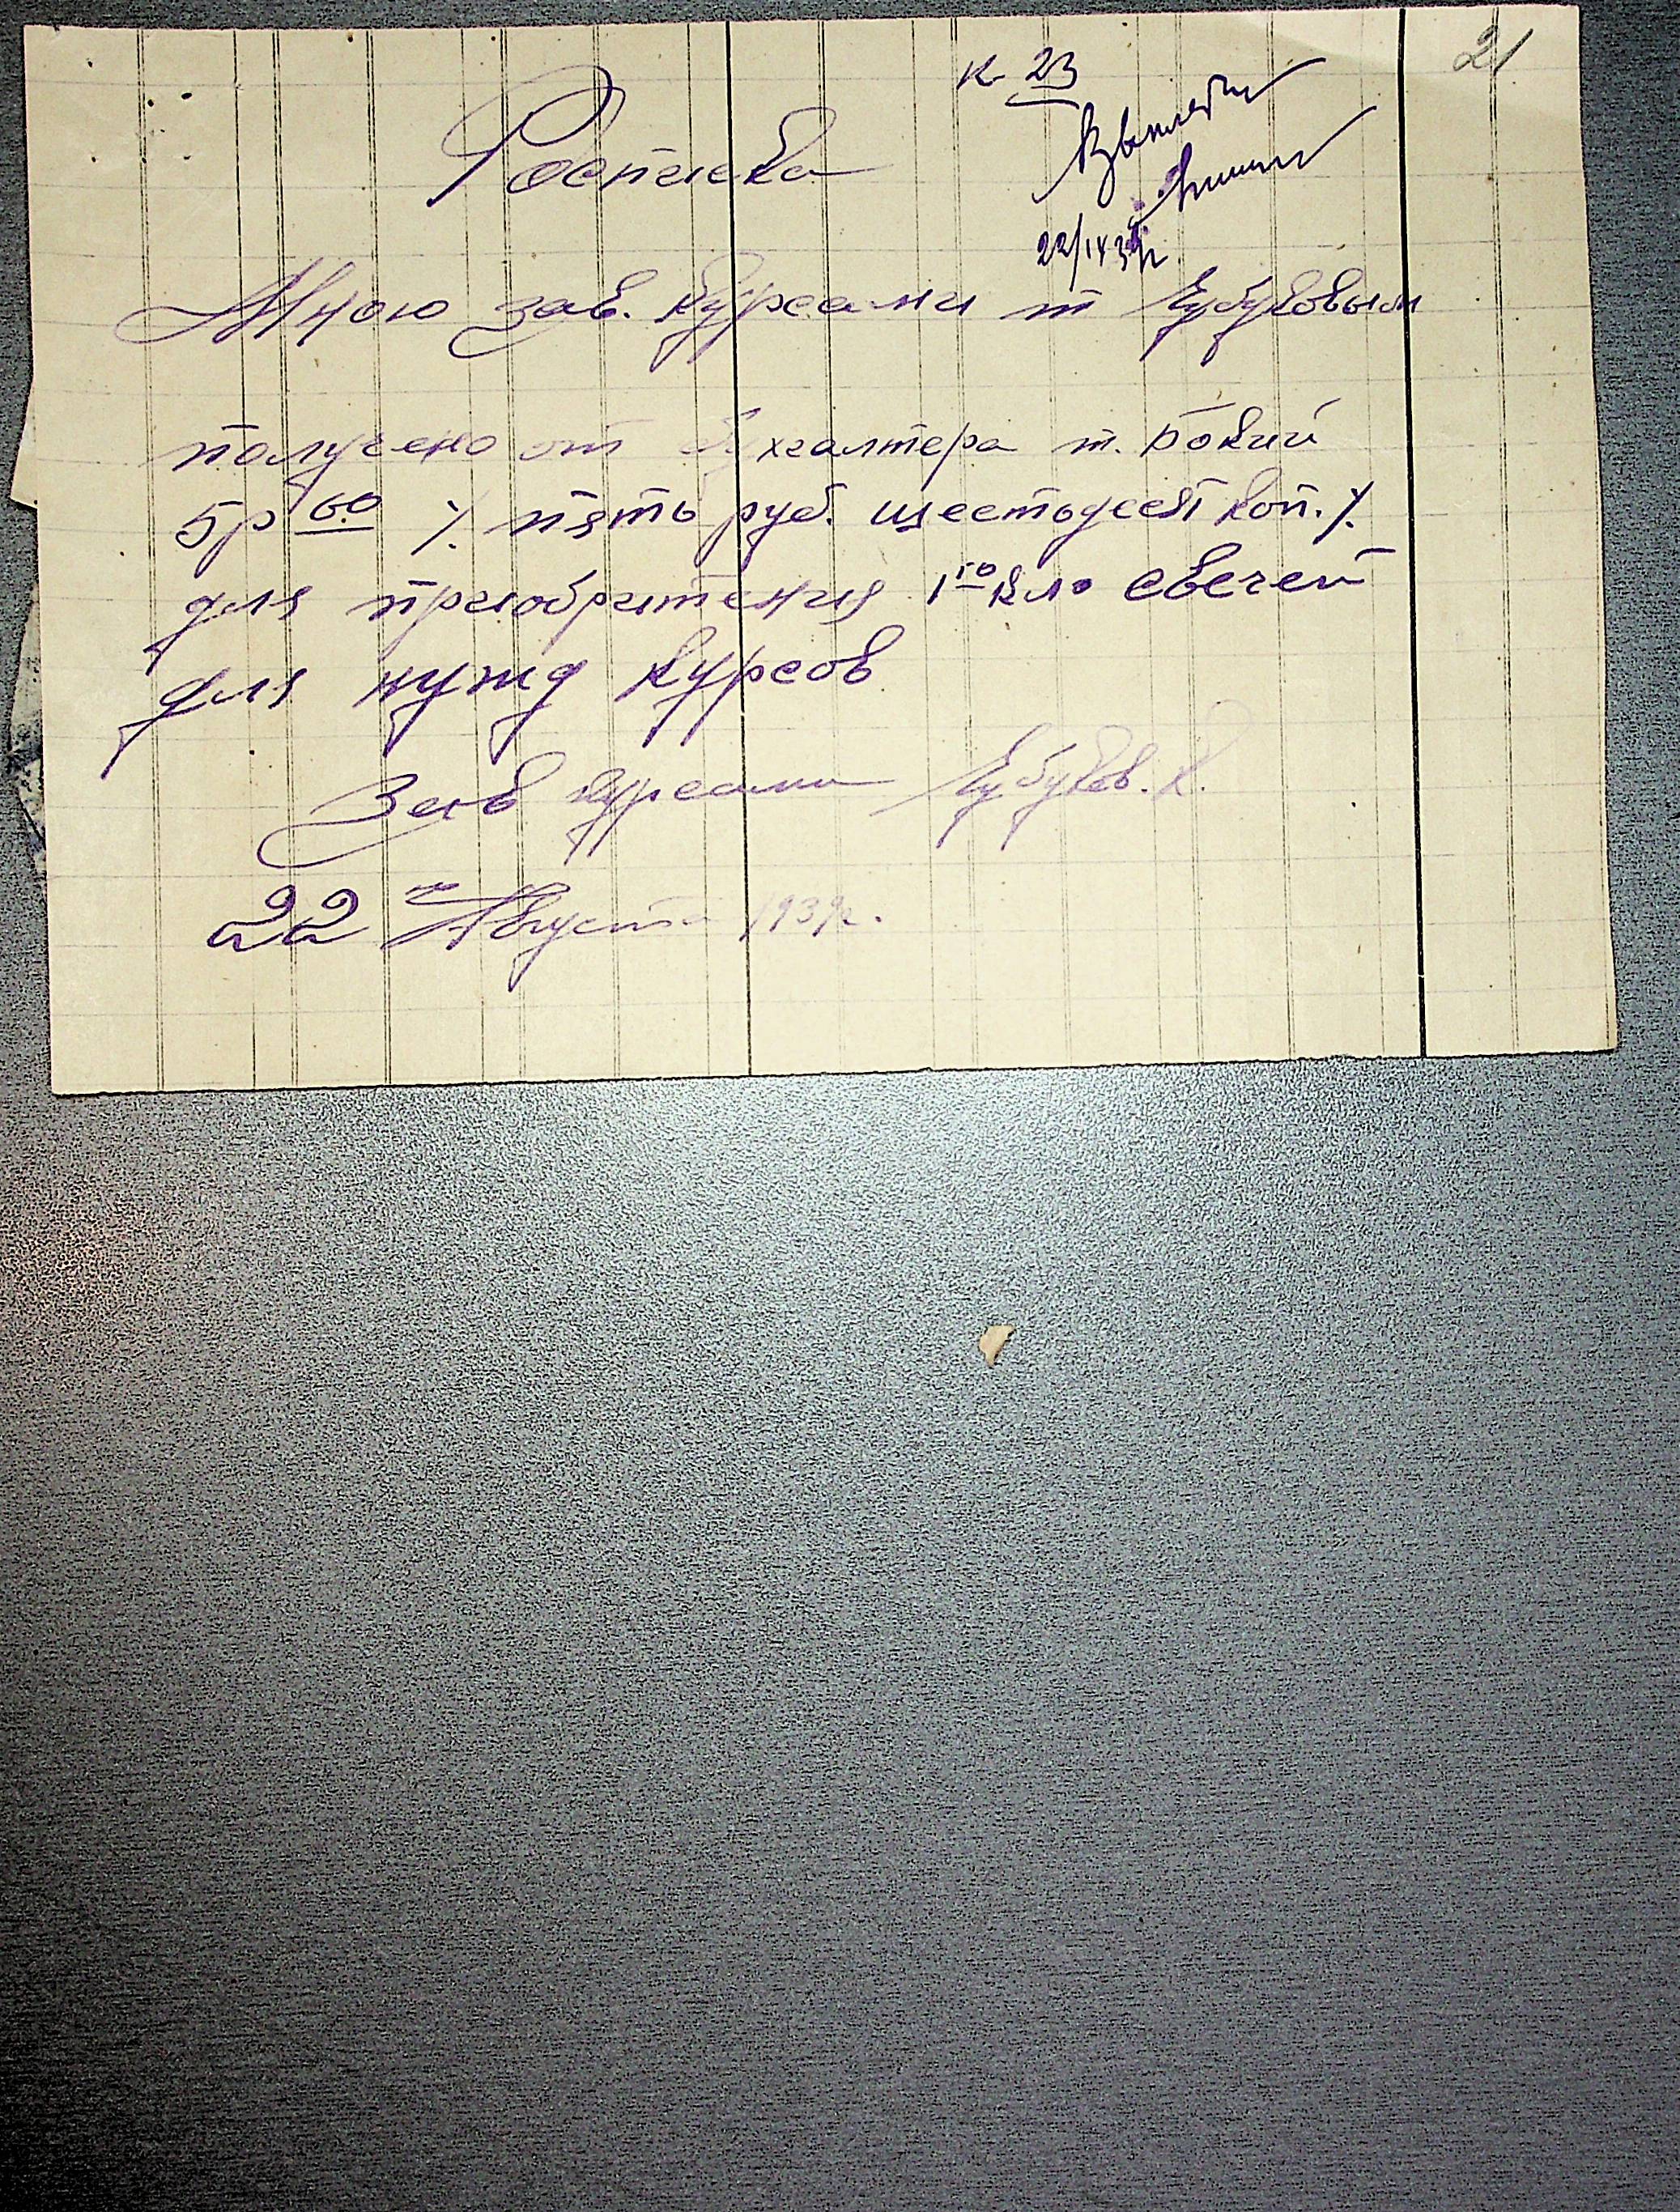 21
К 23
Роспиека
22/IX 39г.
Мною зав. курсами т Кубуковым
получено от бухгалтера т. Бокий
5р 60 ⁒ пять руб. шестьдесят коп. ⁒
для приобритения 1го кло свечей
для нужд курсов
Зав курсами Кубуков. К.
22 Августа 1939г.